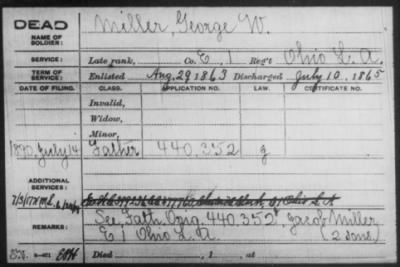 DEAD
NAME OF SOLDIER:
Miller, George W.
SERVICE:
Late rank, Co. E, 1 Reg't Ohio L. A.
TERM OF SERVICE:
Enlisted Aug. 29 1863 Discharged July 10, 1865
DATE OF FILING. CLASS. APPLICATION NO. LAW. CERTIFICATE NO.
Invalid,
Widow,
Minor,
1890, July 14 Father 440.352 g
ADDITIONAL SERVICES:
REMARKS:
See Fath. Orig. 440.352, Jacob Miller
E 1 Ohio L. A. (2 sons.)
Died , 1 , at